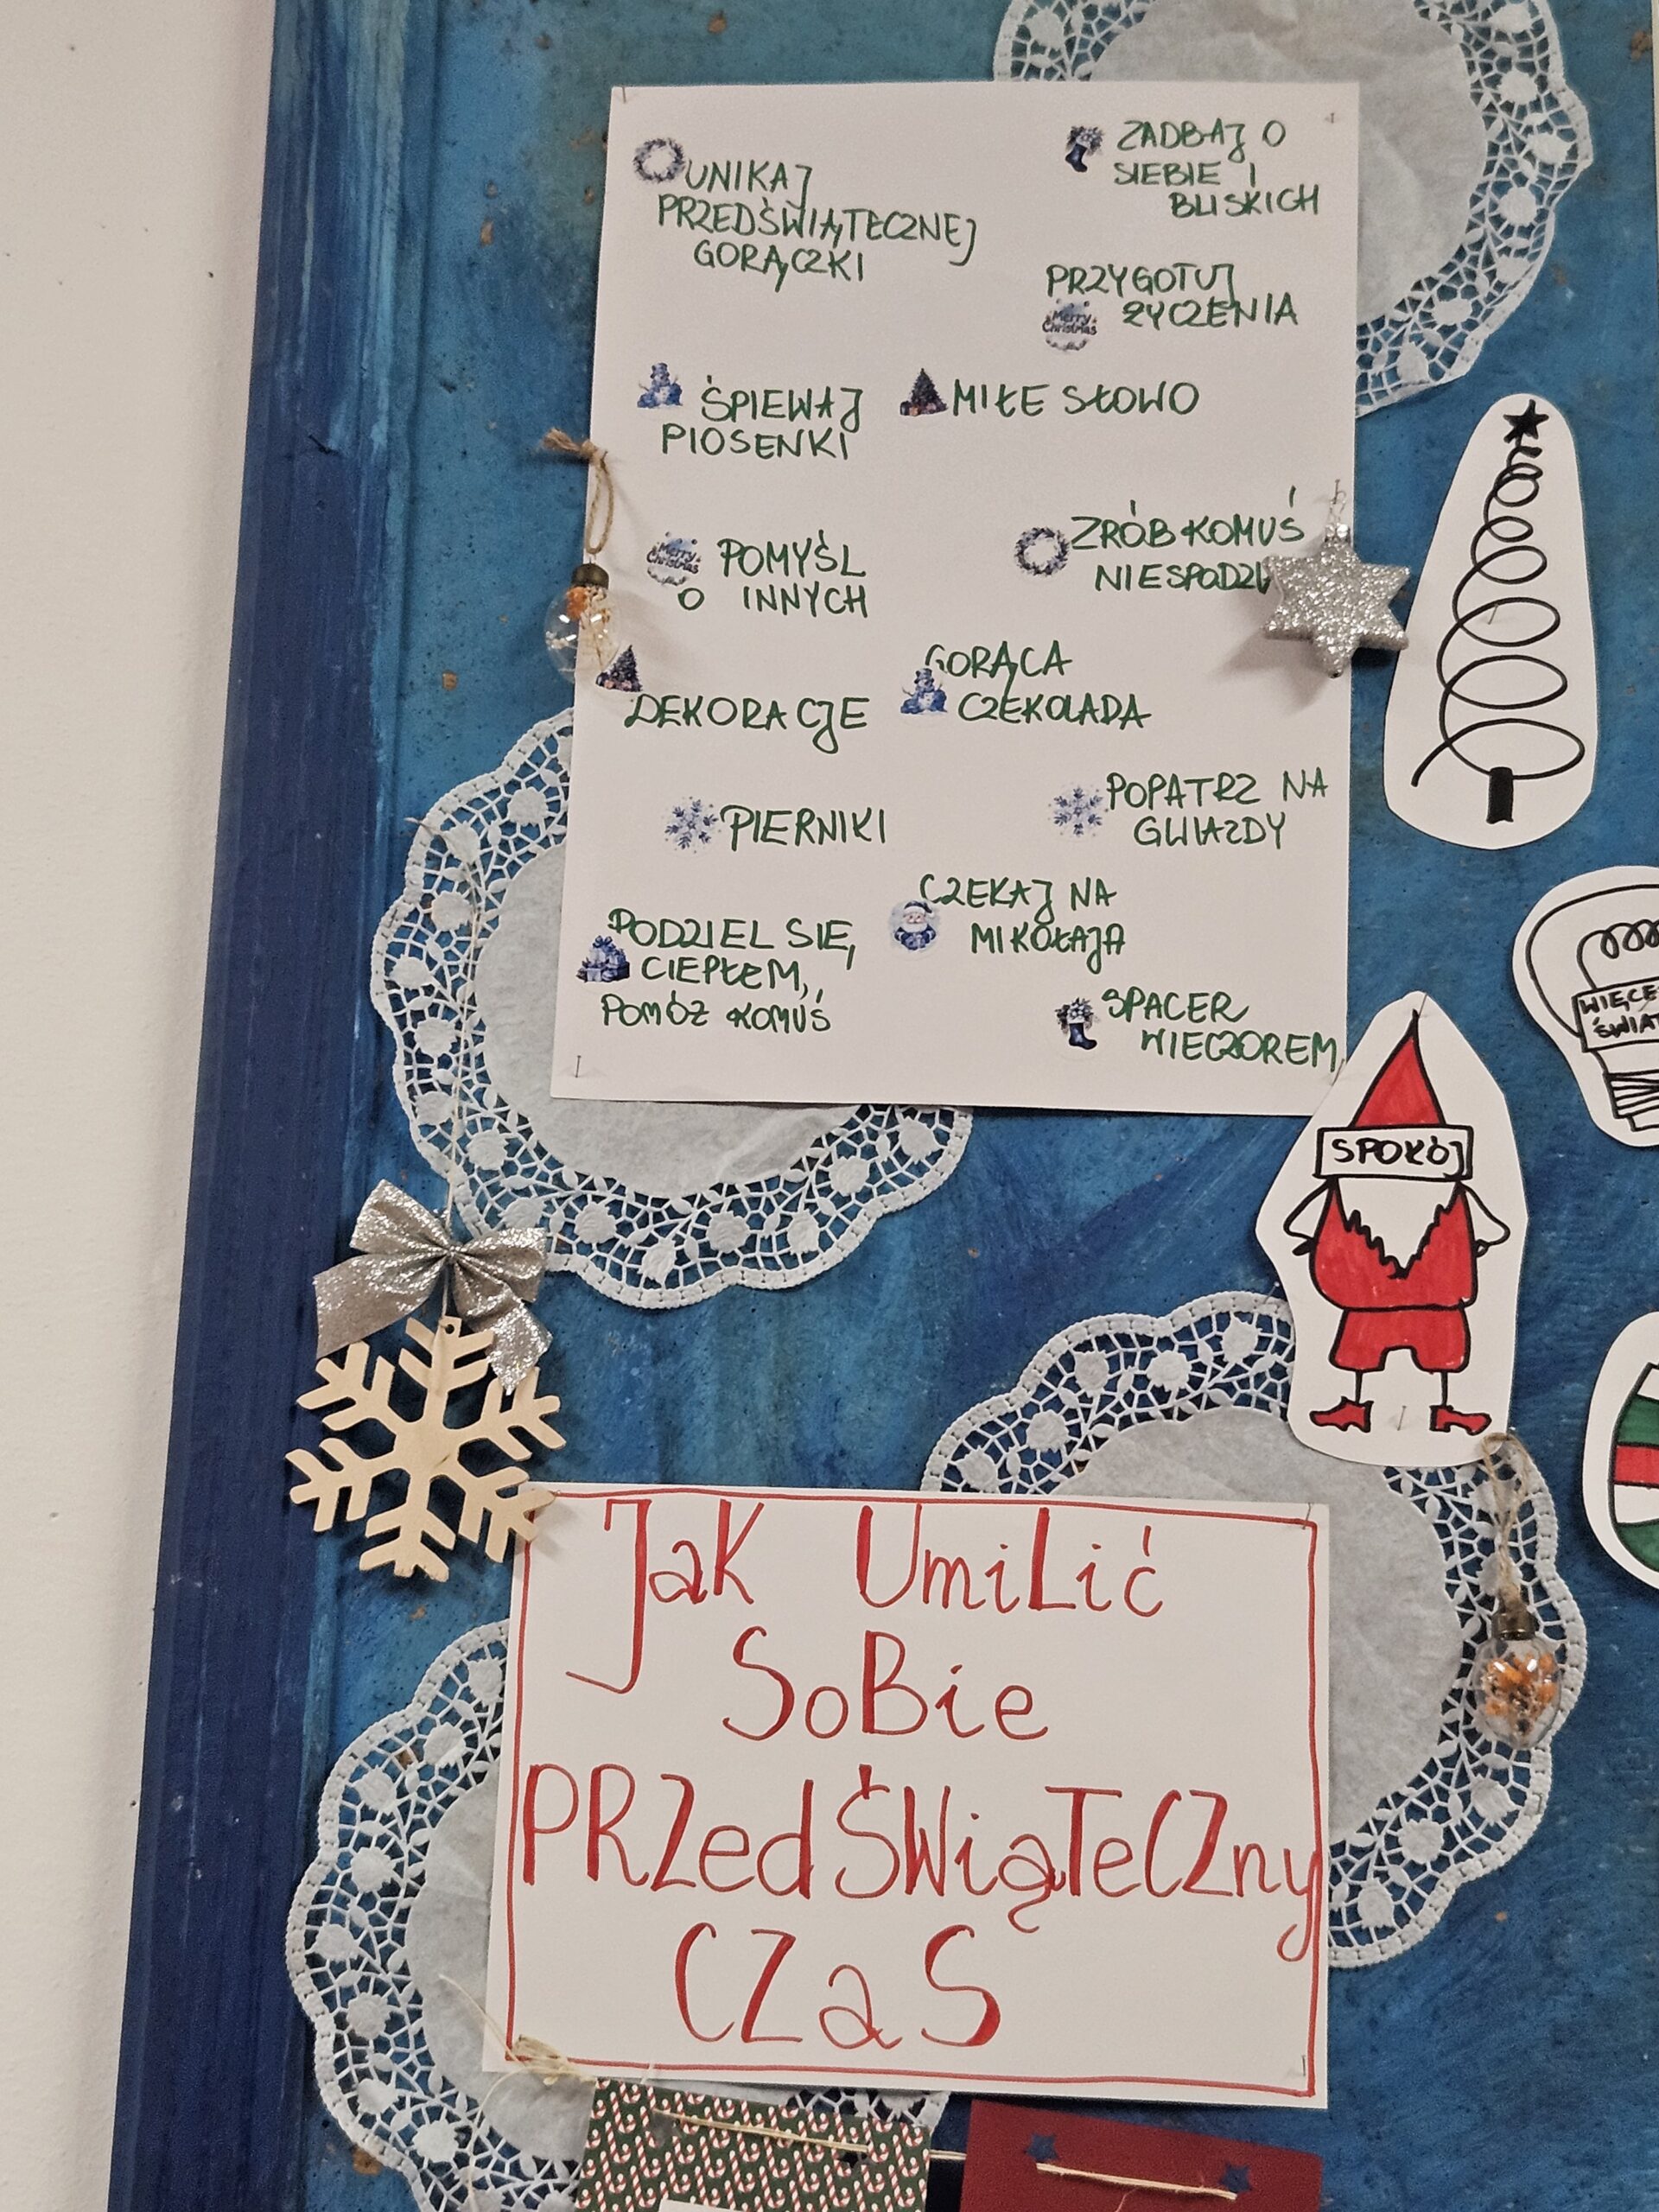 UNIKAJ
PRZEDŚWIĄTECZNEJ
GORĄCZKI
ZADBAJ O
SIEBIE I
BLISKICH
PRZYGOTUJ
ŻYCZENIA
Merry
Christmas
ŚPIEWAJ
PIOSENKI
MIŁE SŁOWO
Merry
Christmas
POMYŚL
O INNYCH
ZRÓB KOMUŚ
DEKORACJE
GORĄCA
CZEKOLADA
PIERNIKI
POPATRZ NA
GWIAZDY
PODZIEL SIĘ
CIEPŁEM,
POMÓŻ KOMUŚ
CZEKAJ NA
MIKOŁAJA
SPACER
WIECZOREM
SPOKÓJ
JaK UmiLić
SoBie
PRZedŚWiąTeCZny
CZaS